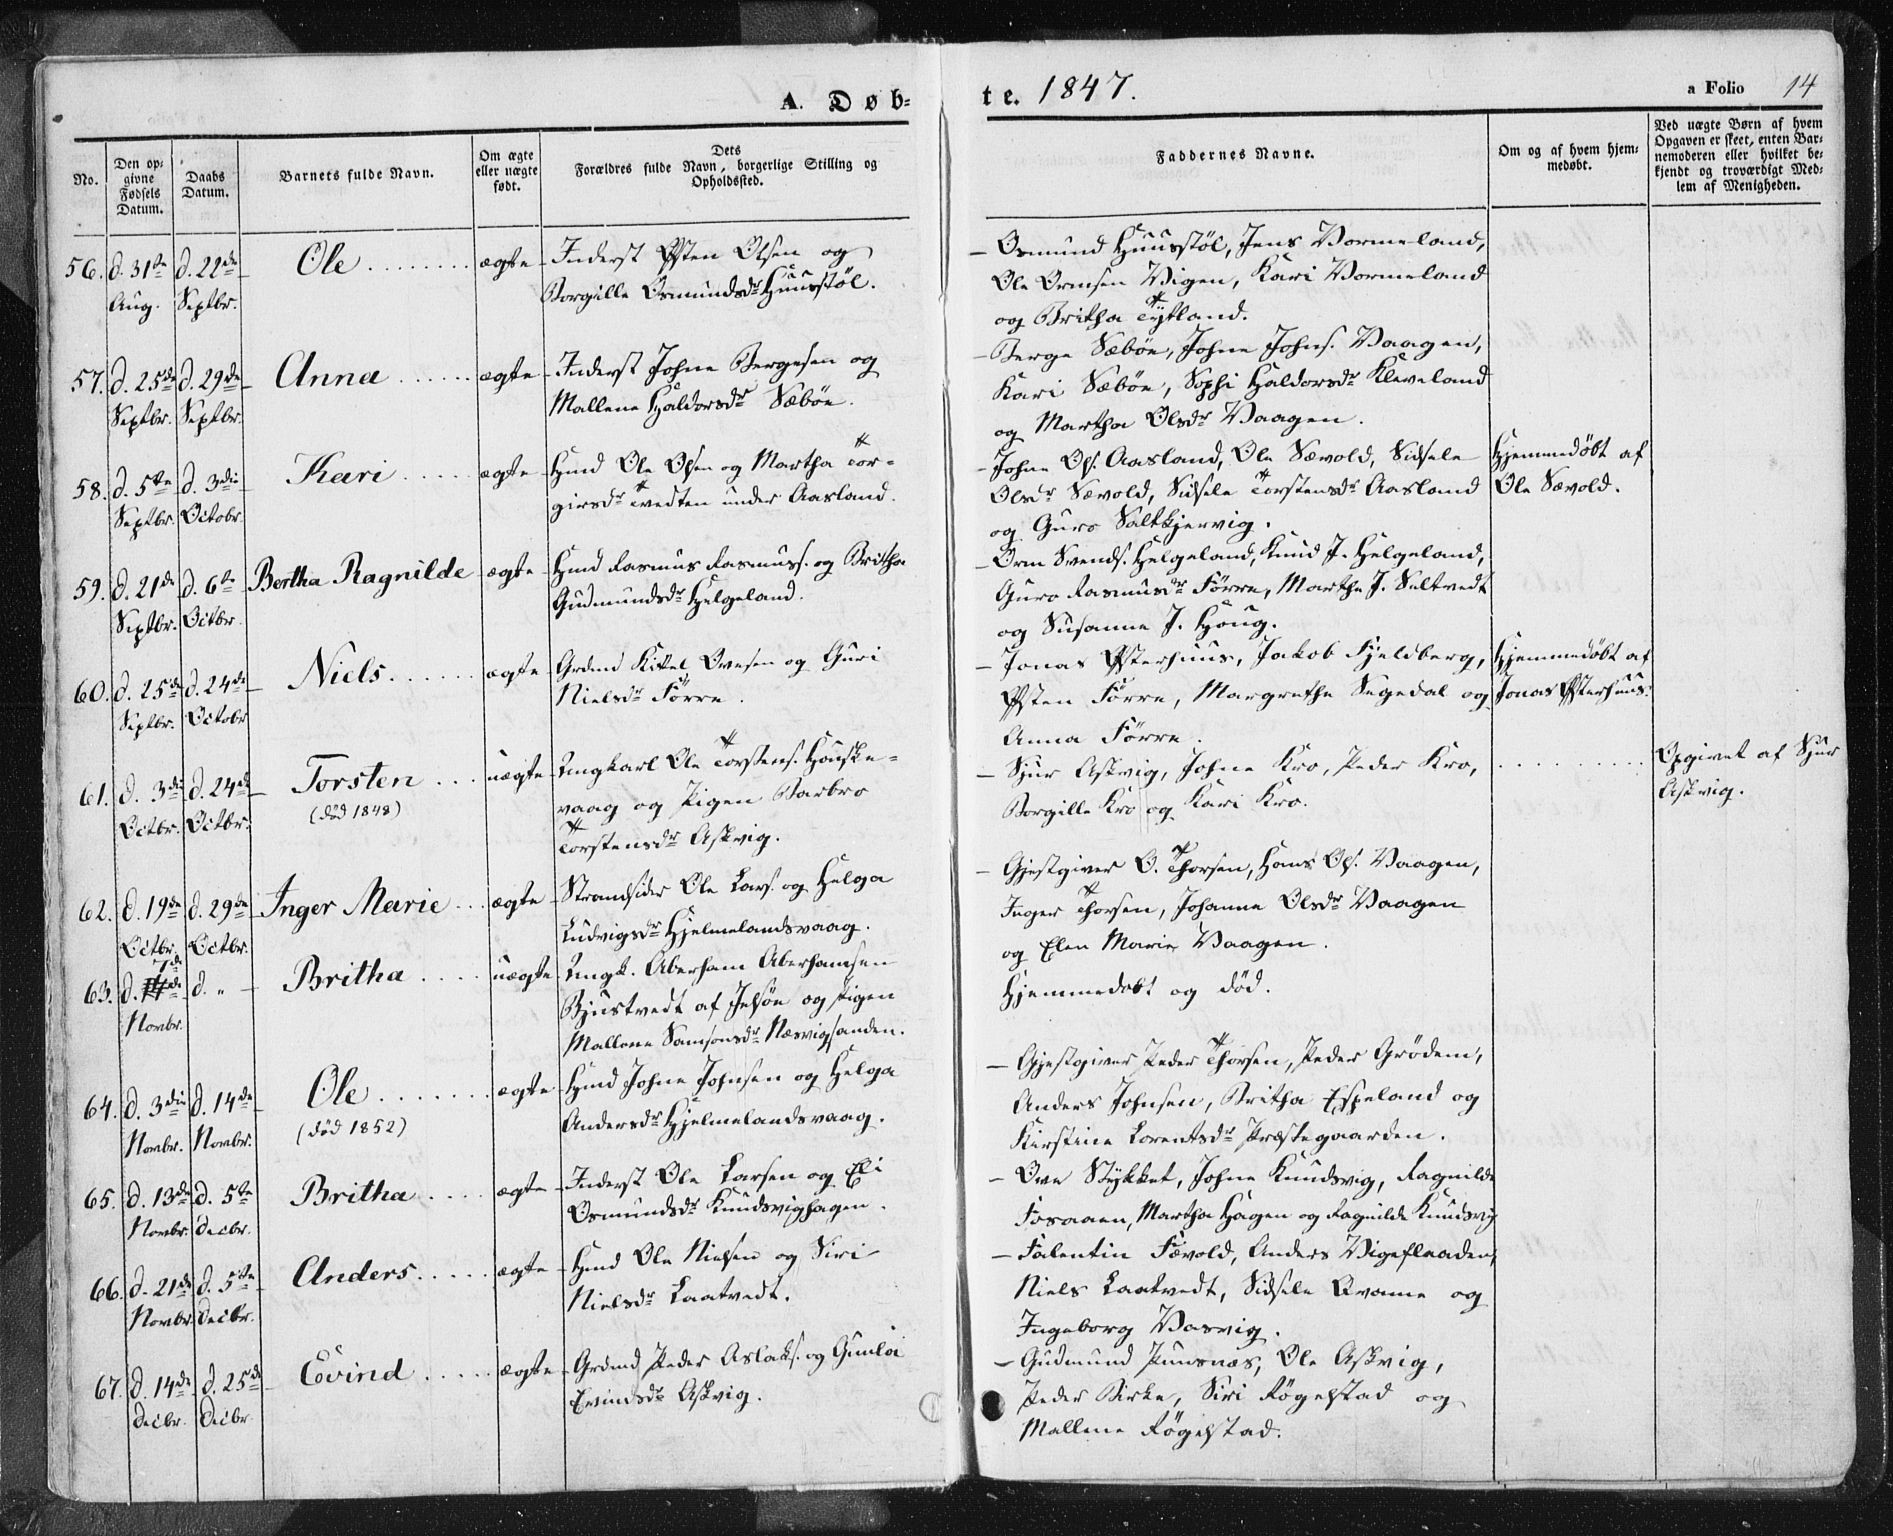 A. Døb-
te. 1847.
a Folio 14
No.
Den op-
givne
Fødsels
Datum.
Daabs
Datum.
Barnets fulde Navn.
Om ægte
eller uægte
født.
Dets
Forældres fulde Navn, borgerlige Stilling og
Opholdssted.
Faddernes Navne.
Om og af hvem hjem-
medøbt.
Ved uægte Børn af hvem
Opgaven er skeet, enten Bar-
nemoderen eller hvilket be-
kjendt og troværdigt Med-
lem af Menigheden.
56. d. 31te Aug. d. 22de Septbr. Ole ........ ægte
Inderst Østen Olsen og
Borgille Osmundsdr Huusstøl.
Osmund Huusstøl, Jens Vormeland,
Ole Ormsen Vigen, Kari Vormeland
og Britha Tytland.
57. d. 25de Septbr. d. 29de Septbr. Anna ...... ægte
Inderst Johne Bergesen og
Mallene Haldorsdr Sæbøe.
Berge Sæbøe, Johne Johns. Vaagen,
Kari Sæbøe, Sophi Haldorsdr Kleveland
og Martha Olsdr Vaagen.
58. d. 5te Septbr. d. 3die Octobr. Kari ...... ægte
Hmd Ole Ols. og Martha Tor-
girsdr Tvedten under Aasland.
Johne Ols. Aasland, Ole Sævold, Sidsele
Olsdr Sævold, Sidsele Torstensdr Aasland
og Guro Saltkjervig.
Hjemmedøbt af
Ole Sævold.
59. d. 21de Septbr. d. 6te Octbr. Bertha Ragnilde ægte
Hmd Rasmus Rasmuss. og Britha
Gudmundsdr Helgeland.
Orm Svends. Helgeland, Knud J. Helgeland,
Guro Rasmusdr Førre, Marthe J. Seltvedt
og Susanne J. Houg.
60. d. 25de Septbr. d. 24de Octobr. Niels ...... ægte
Grdmd Kittel Ovesen og Guri
Nielsdr Førre.
Jonas Østerhuus, Jakob Fjeldberg,
Østen Førre, Margrethe Segedal og
Anna Førre.
Hjemmedøbt af
Jonas Østerhuus.
61. d. 3die Octbr. d. 24de Octbr. Torsten ... uægte
(død 1848)
Ungkarl Ole Torstens. Houske-
vaag og Pigen Barbro
Torstensdr Askvig.
Sjur Askvig, Johne Kro, Peder Kro,
Borgille Kro og Kari Kro.
Opgivet af Sjur
Askvig.
62. d. 19de Octbr. d. 29de Octbr. Inger Marie ... ægte
Strandsider Ole Lars. og Helga
Ludvigsdr Hjelmelandsvaag.
Gjestgiver O. Thorsen, Hans Ols. Vaagen,
Inger Thorsen, Johanne Olsdr Vaagen
og Elen Marie Vaagen.
63. d. 7de Novbr. d. " Britha .... uægte
Ungk. Aberham Aberhamsen
Bjustvedt af Jelsøe og Pigen
Mallene Samsonsdr Næsvigsanden.
Hjemmedøbt og død.
64. d. 3die Novbr. d. 14de Novbr. Ole ....... ægte
(død 1852)
Hmd Johne Johnsen og Helga
Andersdr Hjelmelandsvaag.
Gjestgiver Peder Thorsen, Peder Grødem,
Anders Johnsen, Britha Espeland og
Kirstine Lorentsdr Præstegaarden.
65. d. 13de Novbr. d. 5te Decbr. Britha .... ægte
Inderst Ole Larsen og Eli
Osmundsdr Knudsvighagen.
Ove Stykket, Johne Knudsvig, Ragnilde
Fosaaen, Martha Hagen og Ragnilde Knudsvig
66. d. 21de Novbr. d. 5te Decbr. Anders ..... ægte
Hmd Ole Nielsen og Siri
Nielsdr Laatvedt.
Falentin Sævold, Anders Vigefladen,
Niels Laatvedt, Sidsele Qvamme og
Ingeborg Vasvig.
67. d. 14de Decbr. d. 25de Decbr. Eivind ..... ægte
Grdmd Peder Aslaks. og Gunla
Eivindsdr Askvig.
Gudmund Punsnæs, Ole Askvig,
Peder Birke, Siri Røgelstad og
Mallene Røgelstad.